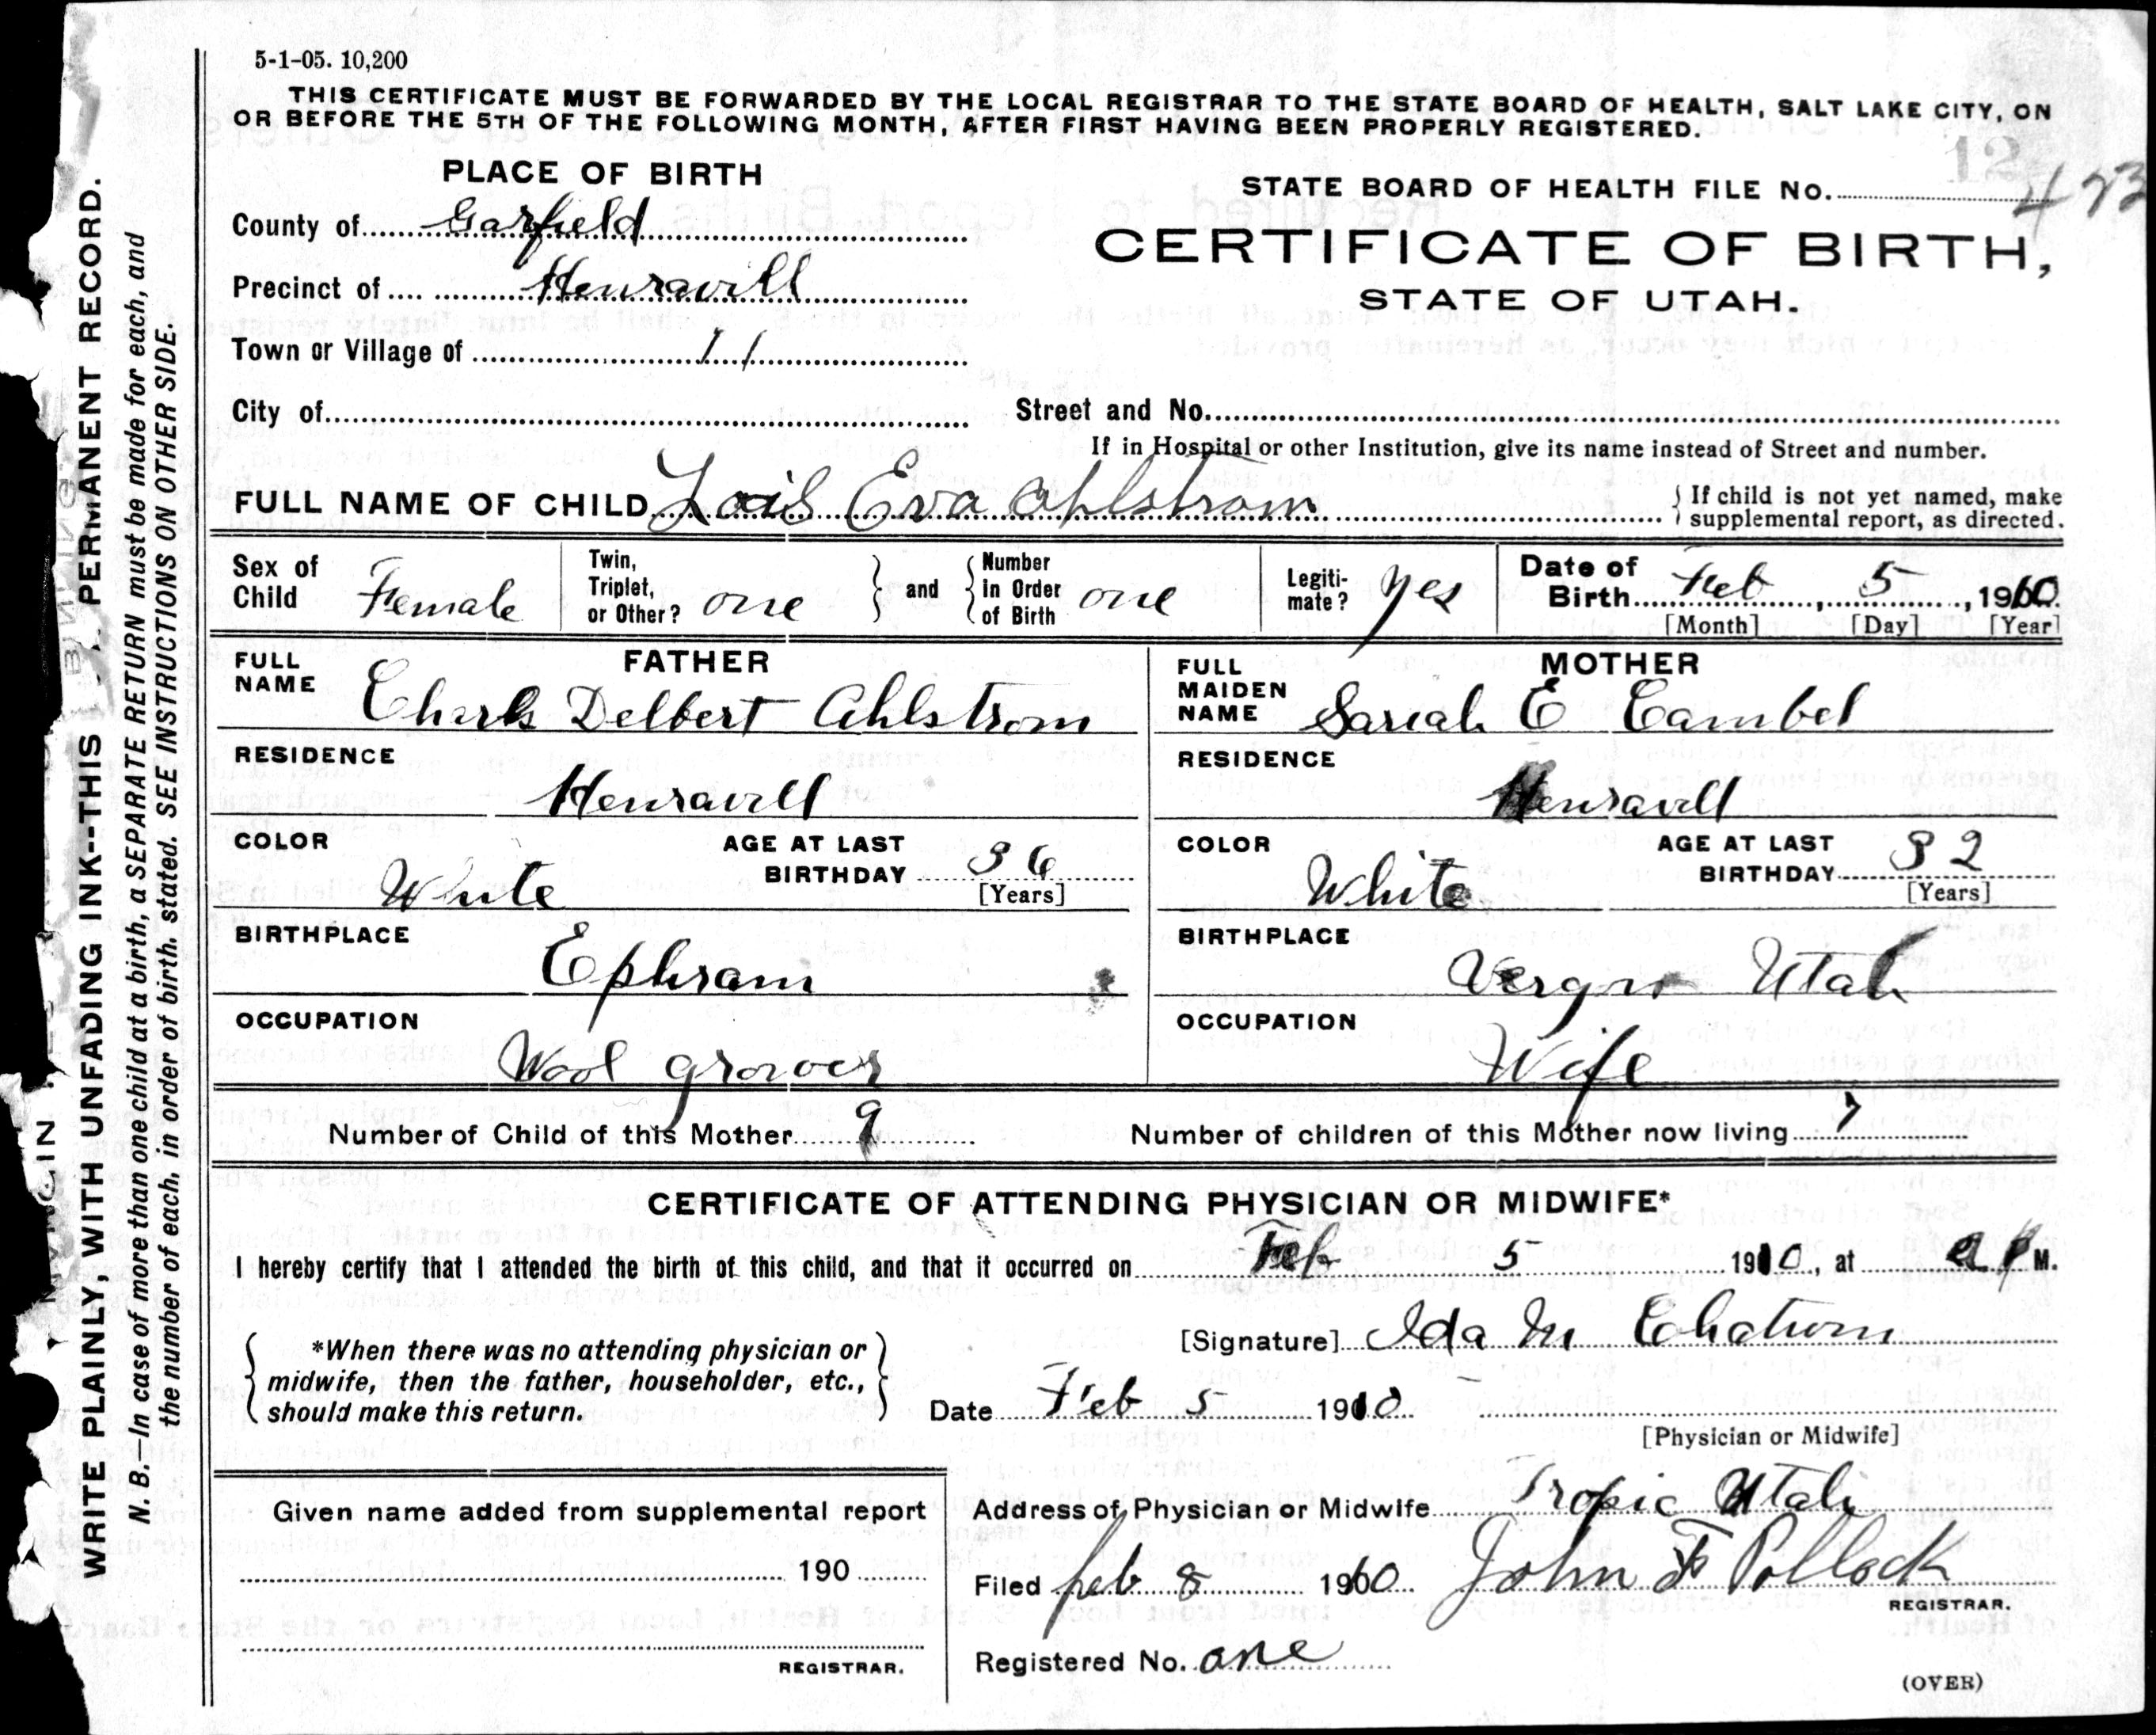 5-1-05. 10,200
THIS CERTIFICATE MUST BE FORWARDED BY THE LOCAL REGISTRAR TO THE STATE BOARD OF HEALTH, SALT LAKE CITY, ON
OR BEFORE THE 5TH OF THE FOLLOWING MONTH, AFTER FIRST HAVING BEEN PROPERLY REGISTERED.
PLACE OF BIRTH
12
STATE BOARD OF HEALTH FILE No. 473
County of Garfield
CERTIFICATE OF BIRTH,
Precinct of Henravill
STATE OF UTAH.
Town or Village of 11
City of
Street and No.
If in Hospital or other Institution, give its name instead of Street and number.
FULL NAME OF CHILD Lois Eva Ahlstrom
If child is not yet named, make
supplemental report, as directed.
Sex of Child Female
Twin, Triplet, or Other? one
and
Number in Order of Birth one
Legiti-mate? yes
Date of Birth Feb, 5, 1910.
[Month] [Day] [Year]
FATHER
FULL NAME
Charls Delbert Ahlstrom
MOTHER
FULL MAIDEN NAME
Sariah E Cambel
RESIDENCE
Henravill
RESIDENCE
Henravill
COLOR
White
AGE AT LAST BIRTHDAY 36
[Years]
COLOR
White
AGE AT LAST BIRTHDAY 32
[Years]
BIRTHPLACE
Ephram
BIRTHPLACE
Utah
OCCUPATION
Wool grower
OCCUPATION
Wife
Number of Child of this Mother 9
Number of children of this Mother now living 7
CERTIFICATE OF ATTENDING PHYSICIAN OR MIDWIFE*
I hereby certify that I attended the birth of this child, and that it occurred on Feb 5 1910, at M.
*When there was no attending physician or
midwife, then the father, householder, etc.,
should make this return.
[Signature] Ida M
Date Feb 5 1910
[Physician or Midwife]
Given name added from supplemental report
190
REGISTRAR.
Address of Physician or Midwife Tropic Utah
Filed feb 8 1910 John F Pollock
REGISTRAR.
Registered No. one
(OVER)
WRITE PLAINLY, WITH UNFADING INK--THIS PERMANENT RECORD.
N. B.—In case of more than one child at a birth, a SEPARATE RETURN must be made for each, and
the number of each, in order of birth, stated. SEE INSTRUCTIONS ON OTHER SIDE.